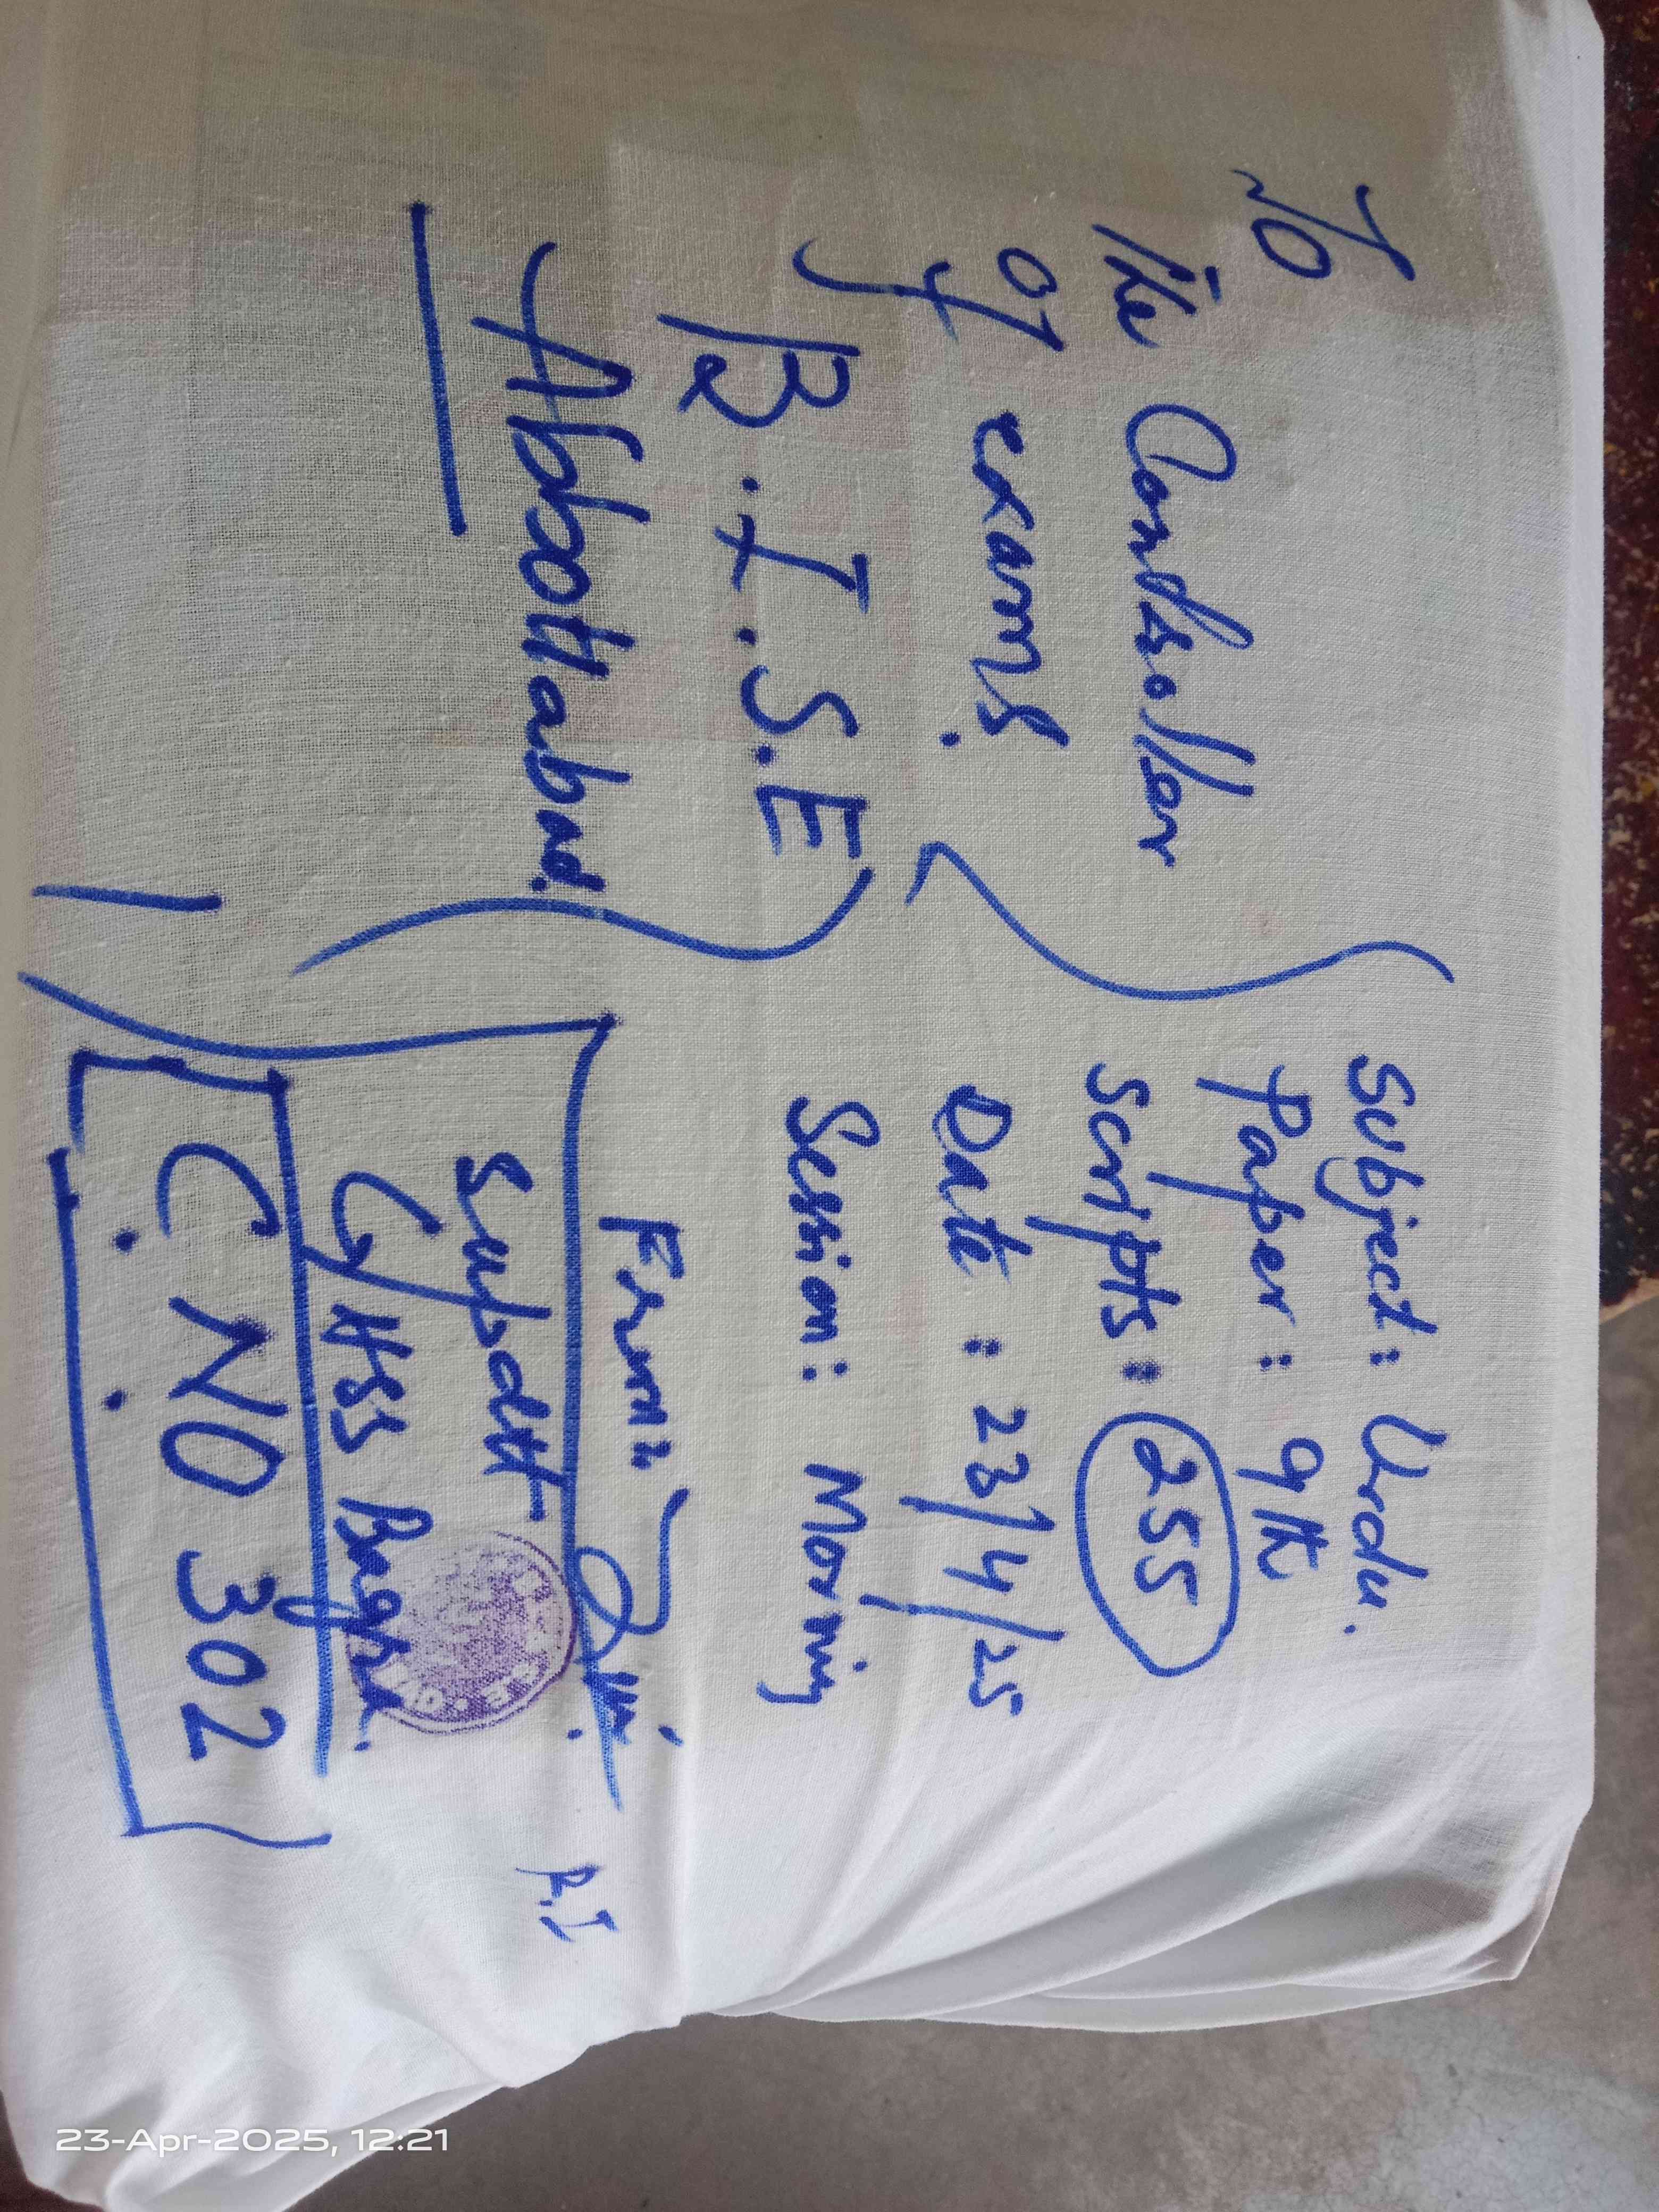 To
The Controller
of exams.
B.I.S.E
Abbottabad.
Subject: Urdu.
Paper: 9th
Scripts: 255
Date: 23/4/25
Session: Morning
From:
Supdtt
GHSS Bagra.
C. NO. 302
R.I
23-Apr-2025, 12:21